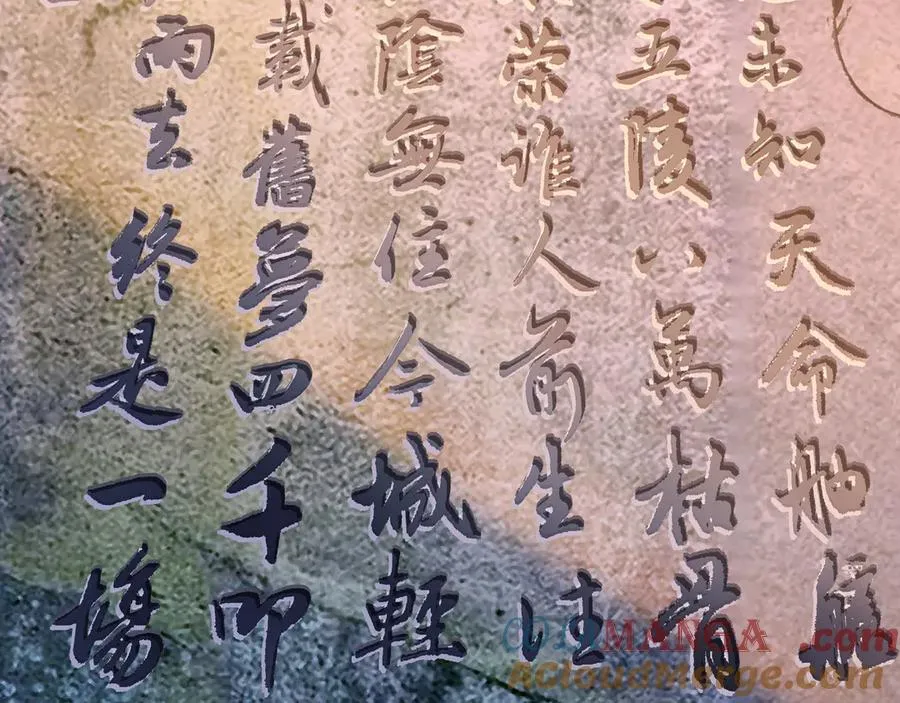 未知天命舳
五陵八萬枯骨
榮誰人前生
陰無住今城輕
載舊夢四千叩
雨去終是一場
COLAMANGA.com
ACloudMerge.com